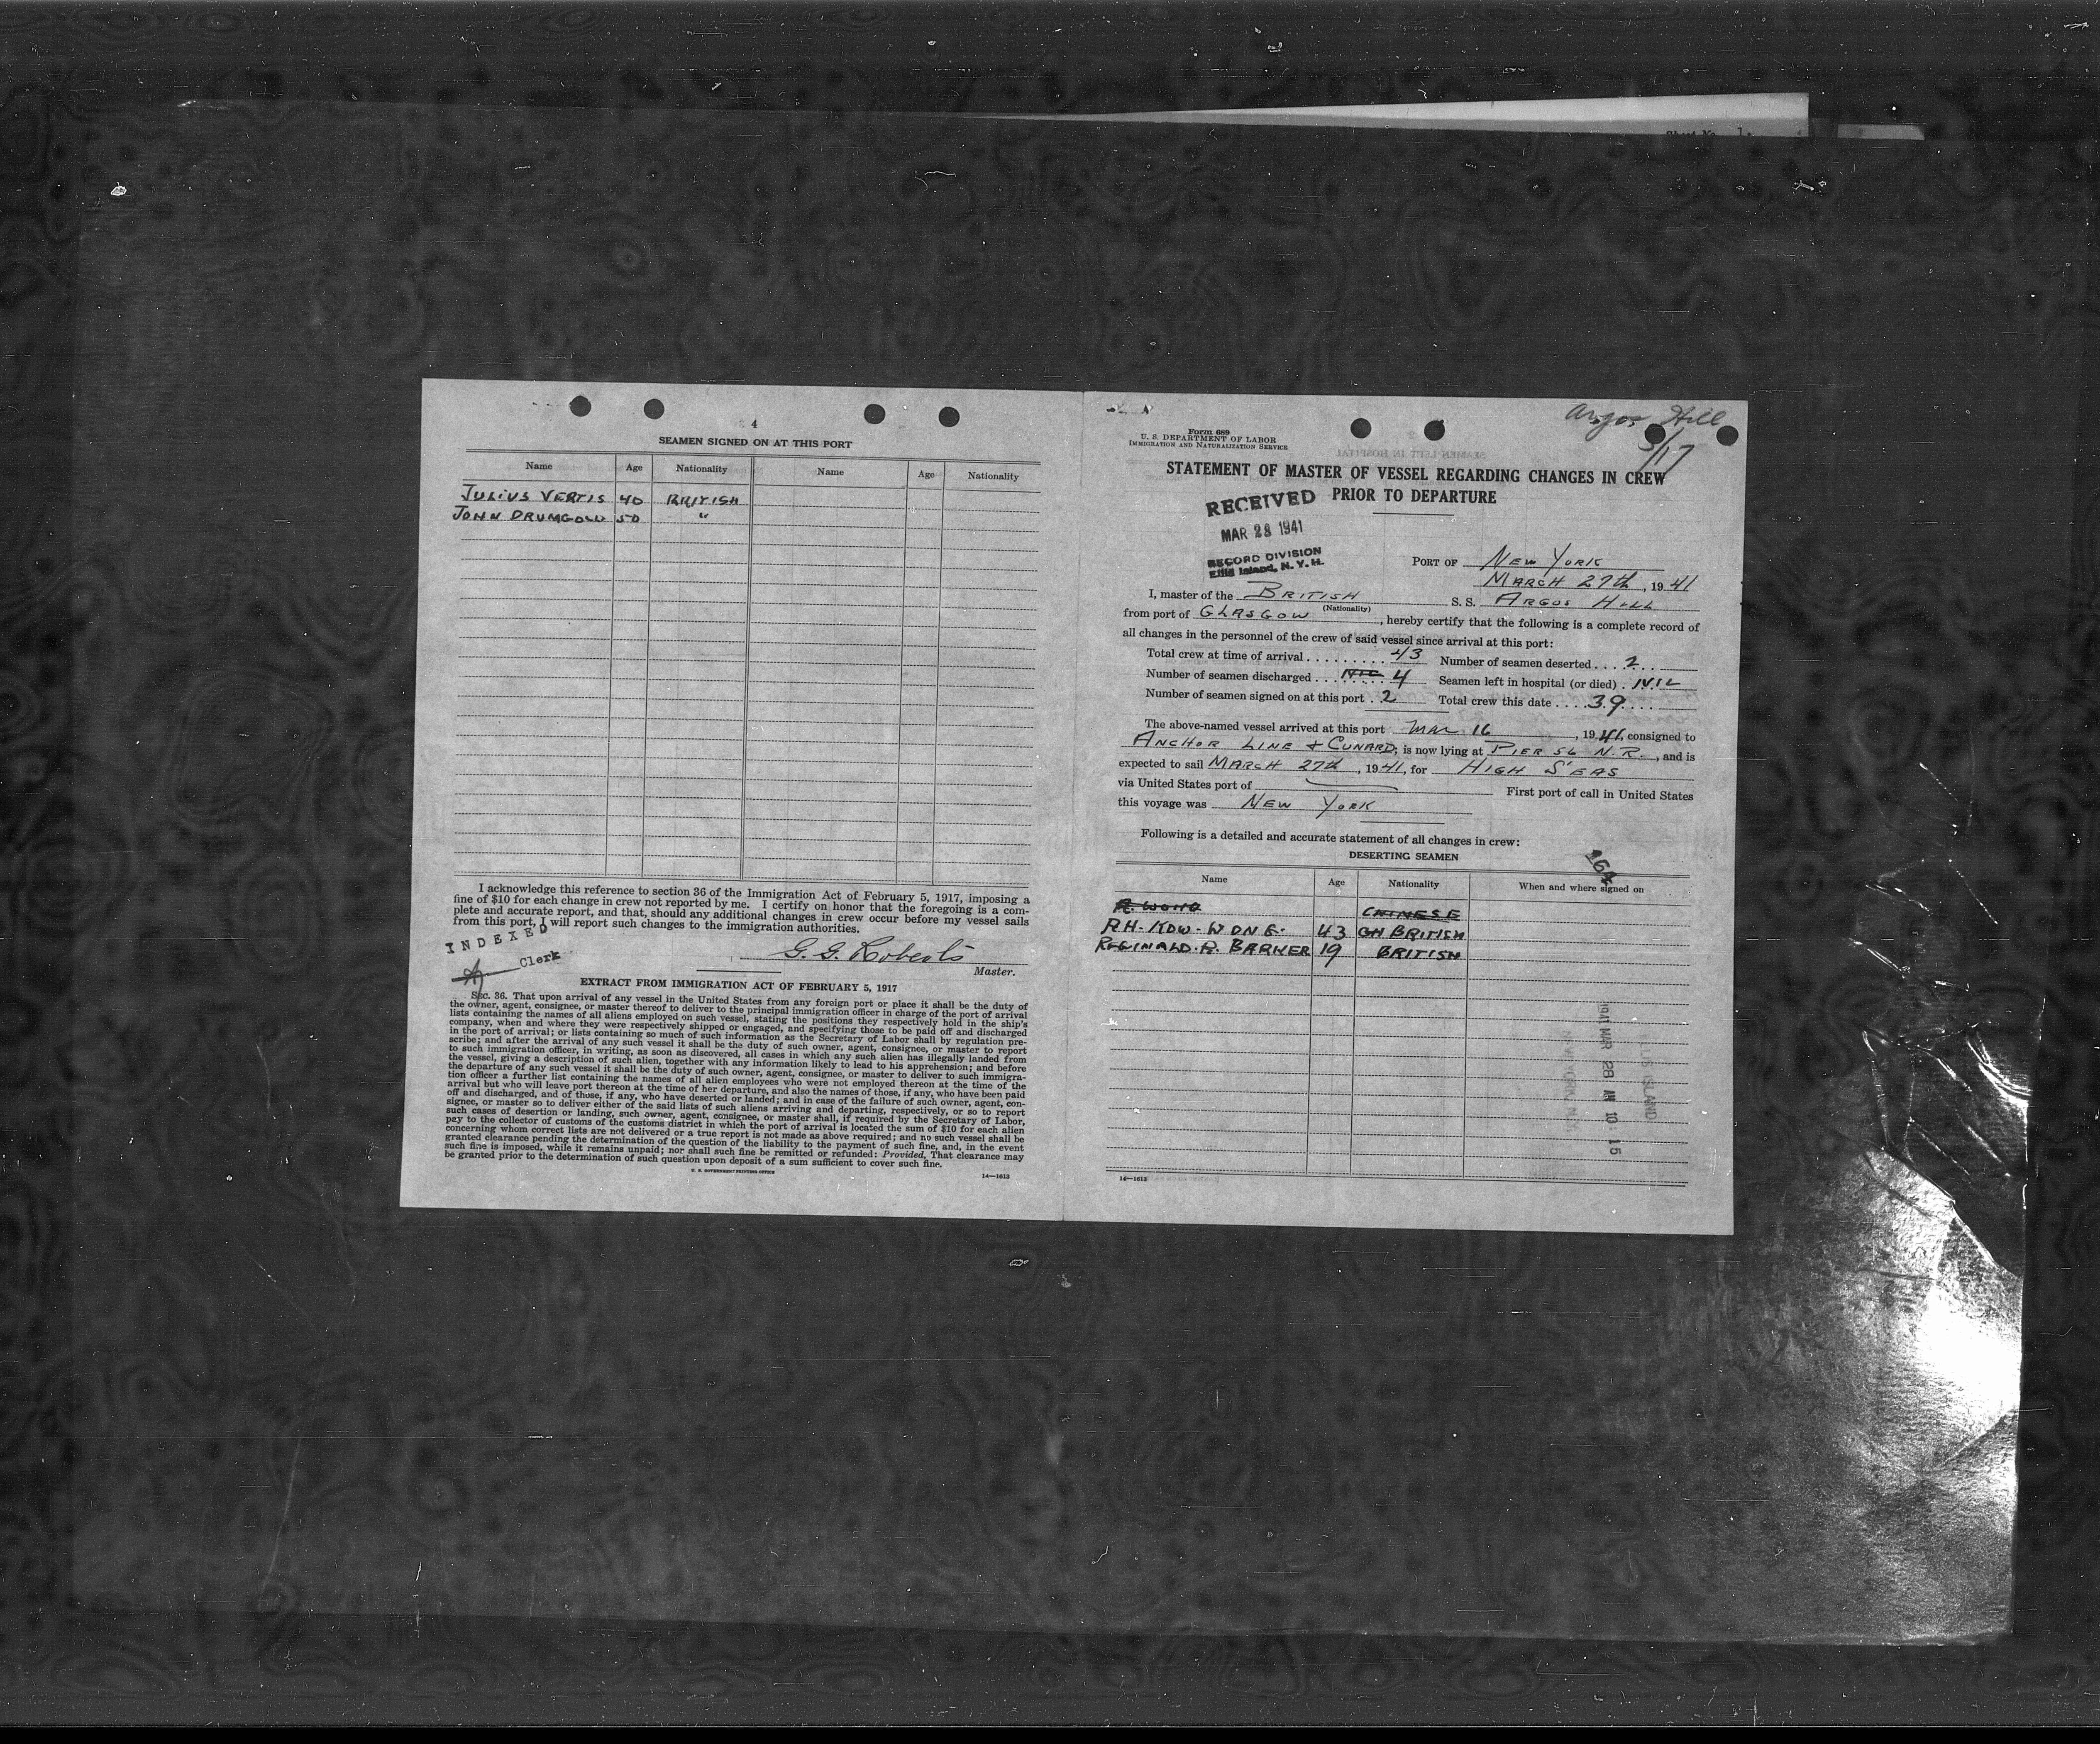 4
SEAMEN SIGNED ON AT THIS PORT
Name Age Nationality Name Age Nationality
JULIUS VERTIS 40 BRITISH
JOHN DRUMGOLD 50 "
I acknowledge this reference to section 36 of the Immigration Act of February 5, 1917, imposing a
fine of $10 for each change in crew not reported by me. I certify on honor that the foregoing is a com-
plete and accurate report, and that, should any additional changes in crew occur before my vessel sails
from this port, I will report such changes to the immigration authorities.
INDEXED
Clerk
G. G. Roberts
Master.
EXTRACT FROM IMMIGRATION ACT OF FEBRUARY 5, 1917
SEC. 36. That upon arrival of any vessel in the United States from any foreign port or place it shall be the duty of
the owner, agent, consignee, or master thereof to deliver to the principal immigration officer in charge of the port of arrival
lists containing the names of all aliens employed on such vessel, stating the positions they respectively hold in the ship's
company, when and where they were respectively shipped or engaged, and specifying those to be paid off and discharged
in the port of arrival; or lists containing so much of such information as the Secretary of Labor shall by regulation pre-
scribe; and after the arrival of any such vessel it shall be the duty of such owner, agent, consignee, or master to report
to such immigration officer, in writing, as soon as discovered, all cases in which any such alien has illegally landed from
the vessel, giving a description of such alien, together with any information likely to lead to his apprehension; and before
the departure of any such vessel it shall be the duty of such owner, agent, consignee, or master to deliver to such immigra-
tion officer a further list containing the names of all alien employees who were not employed thereon at the time of the
arrival but who will leave port thereon at the time of her departure, and also the names of those, if any, who have been paid
off and discharged, and of those, if any, who have deserted or landed; and in case of the failure of such owner, agent, con-
signee, or master so to deliver either of the said lists of such aliens arriving and departing, respectively, or so to report
such cases of desertion or landing, such owner, agent, consignee, or master shall, if required by the Secretary of Labor,
pay to the collector of customs of the customs district in which the port of arrival is located the sum of $10 for each alien
concerning whom correct lists are not delivered or a true report is not made as above required; and no such vessel shall be
granted clearance pending the determination of the question of the liability to the payment of such fine, and, in the event
such fine is imposed, while it remains unpaid; nor shall such fine be remitted or refunded: Provided, That clearance may
be granted prior to the determination of such question upon deposit of a sum sufficient to cover such fine.
U. S. GOVERNMENT PRINTING OFFICE
14—1613
Argos Hill
3/17
Form 689
U. S. DEPARTMENT OF LABOR
IMMIGRATION AND NATURALIZATION SERVICE
STATEMENT OF MASTER OF VESSEL REGARDING CHANGES IN CREW
PRIOR TO DEPARTURE
RECEIVED
MAR 28 1941
RECORD DIVISION
Ellis Island, N. Y. H.
PORT OF NEW YORK
MARCH 27th, 1941
I, master of the BRITISH S. S. ARGOS HILL
(Nationality)
from port of GLASGOW, hereby certify that the following is a complete record of
all changes in the personnel of the crew of said vessel since arrival at this port:
Total crew at time of arrival 43 Number of seamen deserted 2
Number of seamen discharged NIL 4 Seamen left in hospital (or died) NIL
Number of seamen signed on at this port 2 Total crew this date 39
The above-named vessel arrived at this port Mar 16, 1941, consigned to
ANCHOR LINE & CUNARD; is now lying at PIER 56 N.R., and is
expected to sail MARCH 27th, 1941, for HIGH SEAS
via United States port of First port of call in United States
this voyage was NEW YORK
Following is a detailed and accurate statement of all changes in crew:
DESERTING SEAMEN
Name Age Nationality When and where signed on
CHINESE
43 BRITISH
REGINALD. R. BARKER 19 BRITISH
1941 MAR 28 AM 10 15
ELLIS ISLAND
14—1613